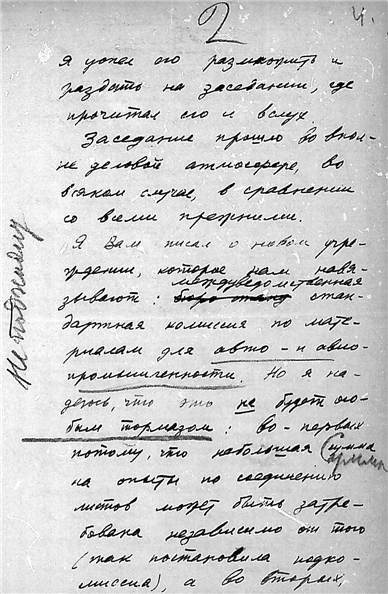 2
4.
я успел его размножить и
раздать на заседании, где
прочитал его и вслух.
Заседание прошло во впол-
не деловой атмосфере, во
всяком случае, в сравнении
со всеми прежними.
Я Вам писал о новом учре-
ждении, которое нам навя-
междуведомственная
зывают: бюро станд стан-
дартная комиссия по мате-
риалам для авто- и авио-
промышленности. Но я на-
деюсь, что это не будет осо-
бым тормазом: во-первых
потому, что небольшая сумма
Сумма
на опыты по соединению
листов может быть затре-
бована независимо от того
(так постановила подко-
миссия), а во вторых,
Не подлежит